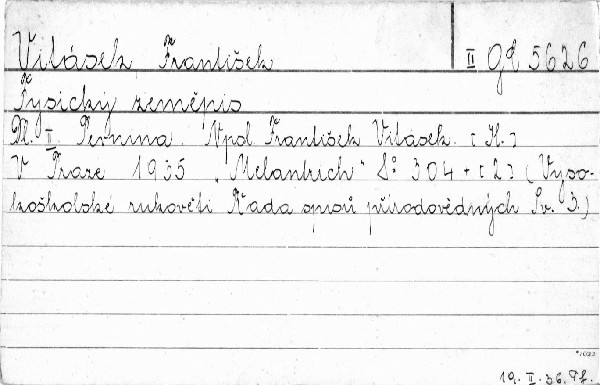 Vitásek František II Gd 5626
Fysický zeměpis
Dl. II. Pevnina. Naps. František Vitásek. [H.]
V Praze 1935 „Melantrich“ 8° 304 + [2] (Vyso-
koškolské rukověti Řada spisů přírodovědných Sv. 3.)
19. II. 36. Pf.